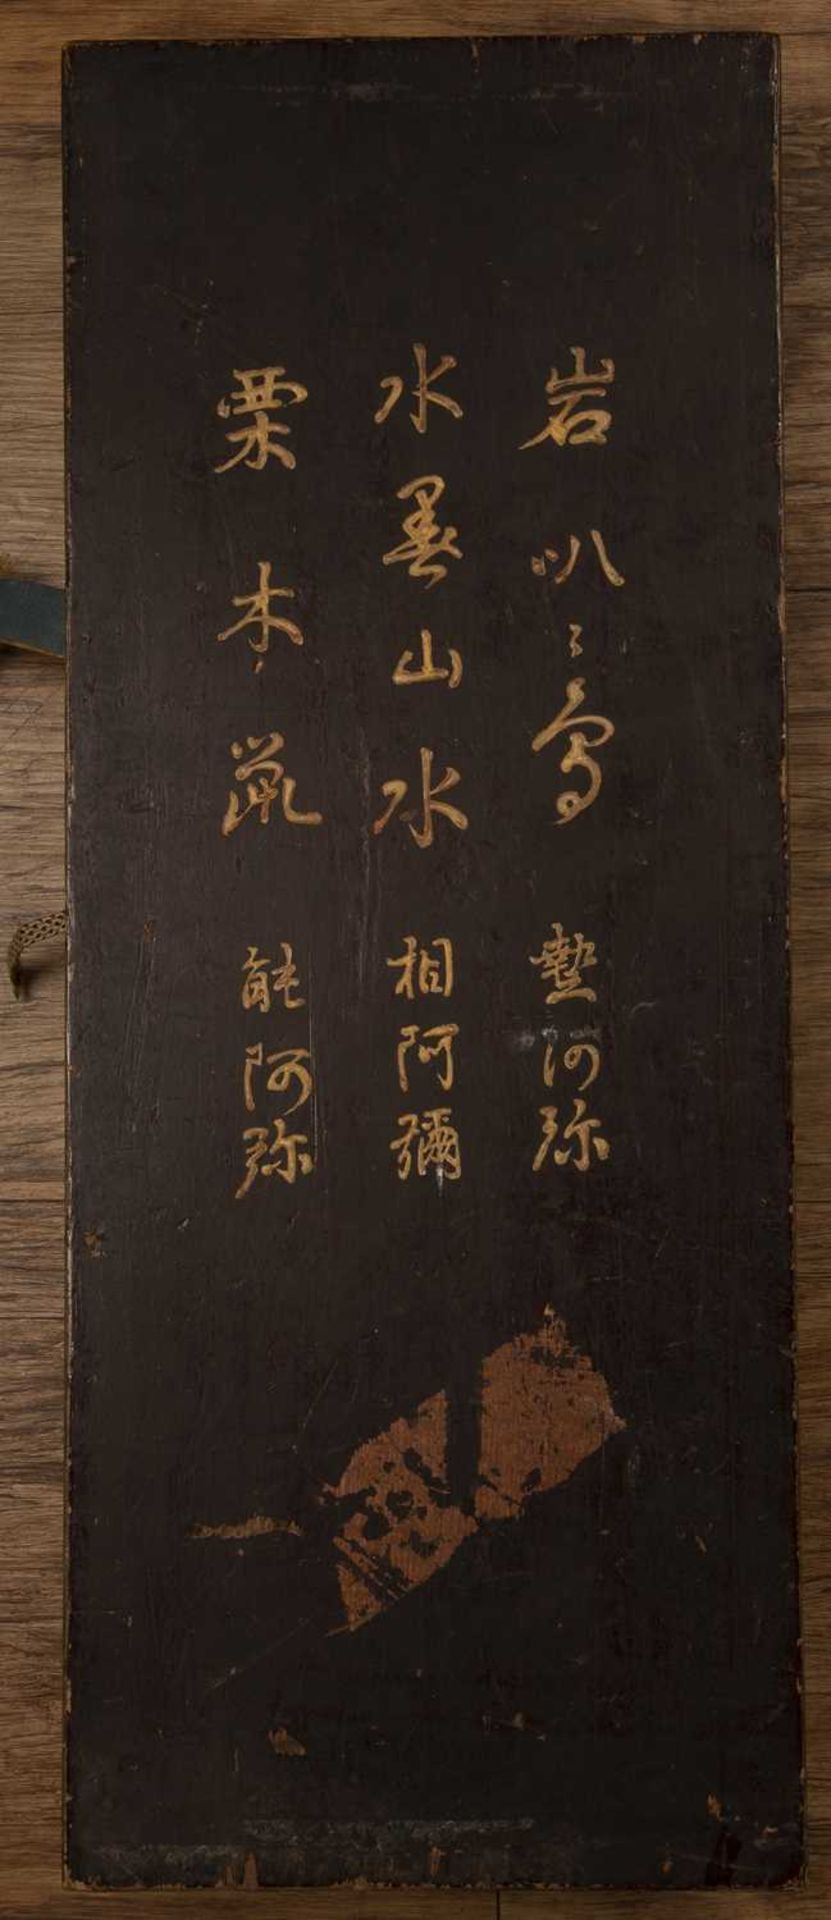 岩叭々鳥 藝阿弥
水墨山水 相阿彌
栗木鼠 能阿弥